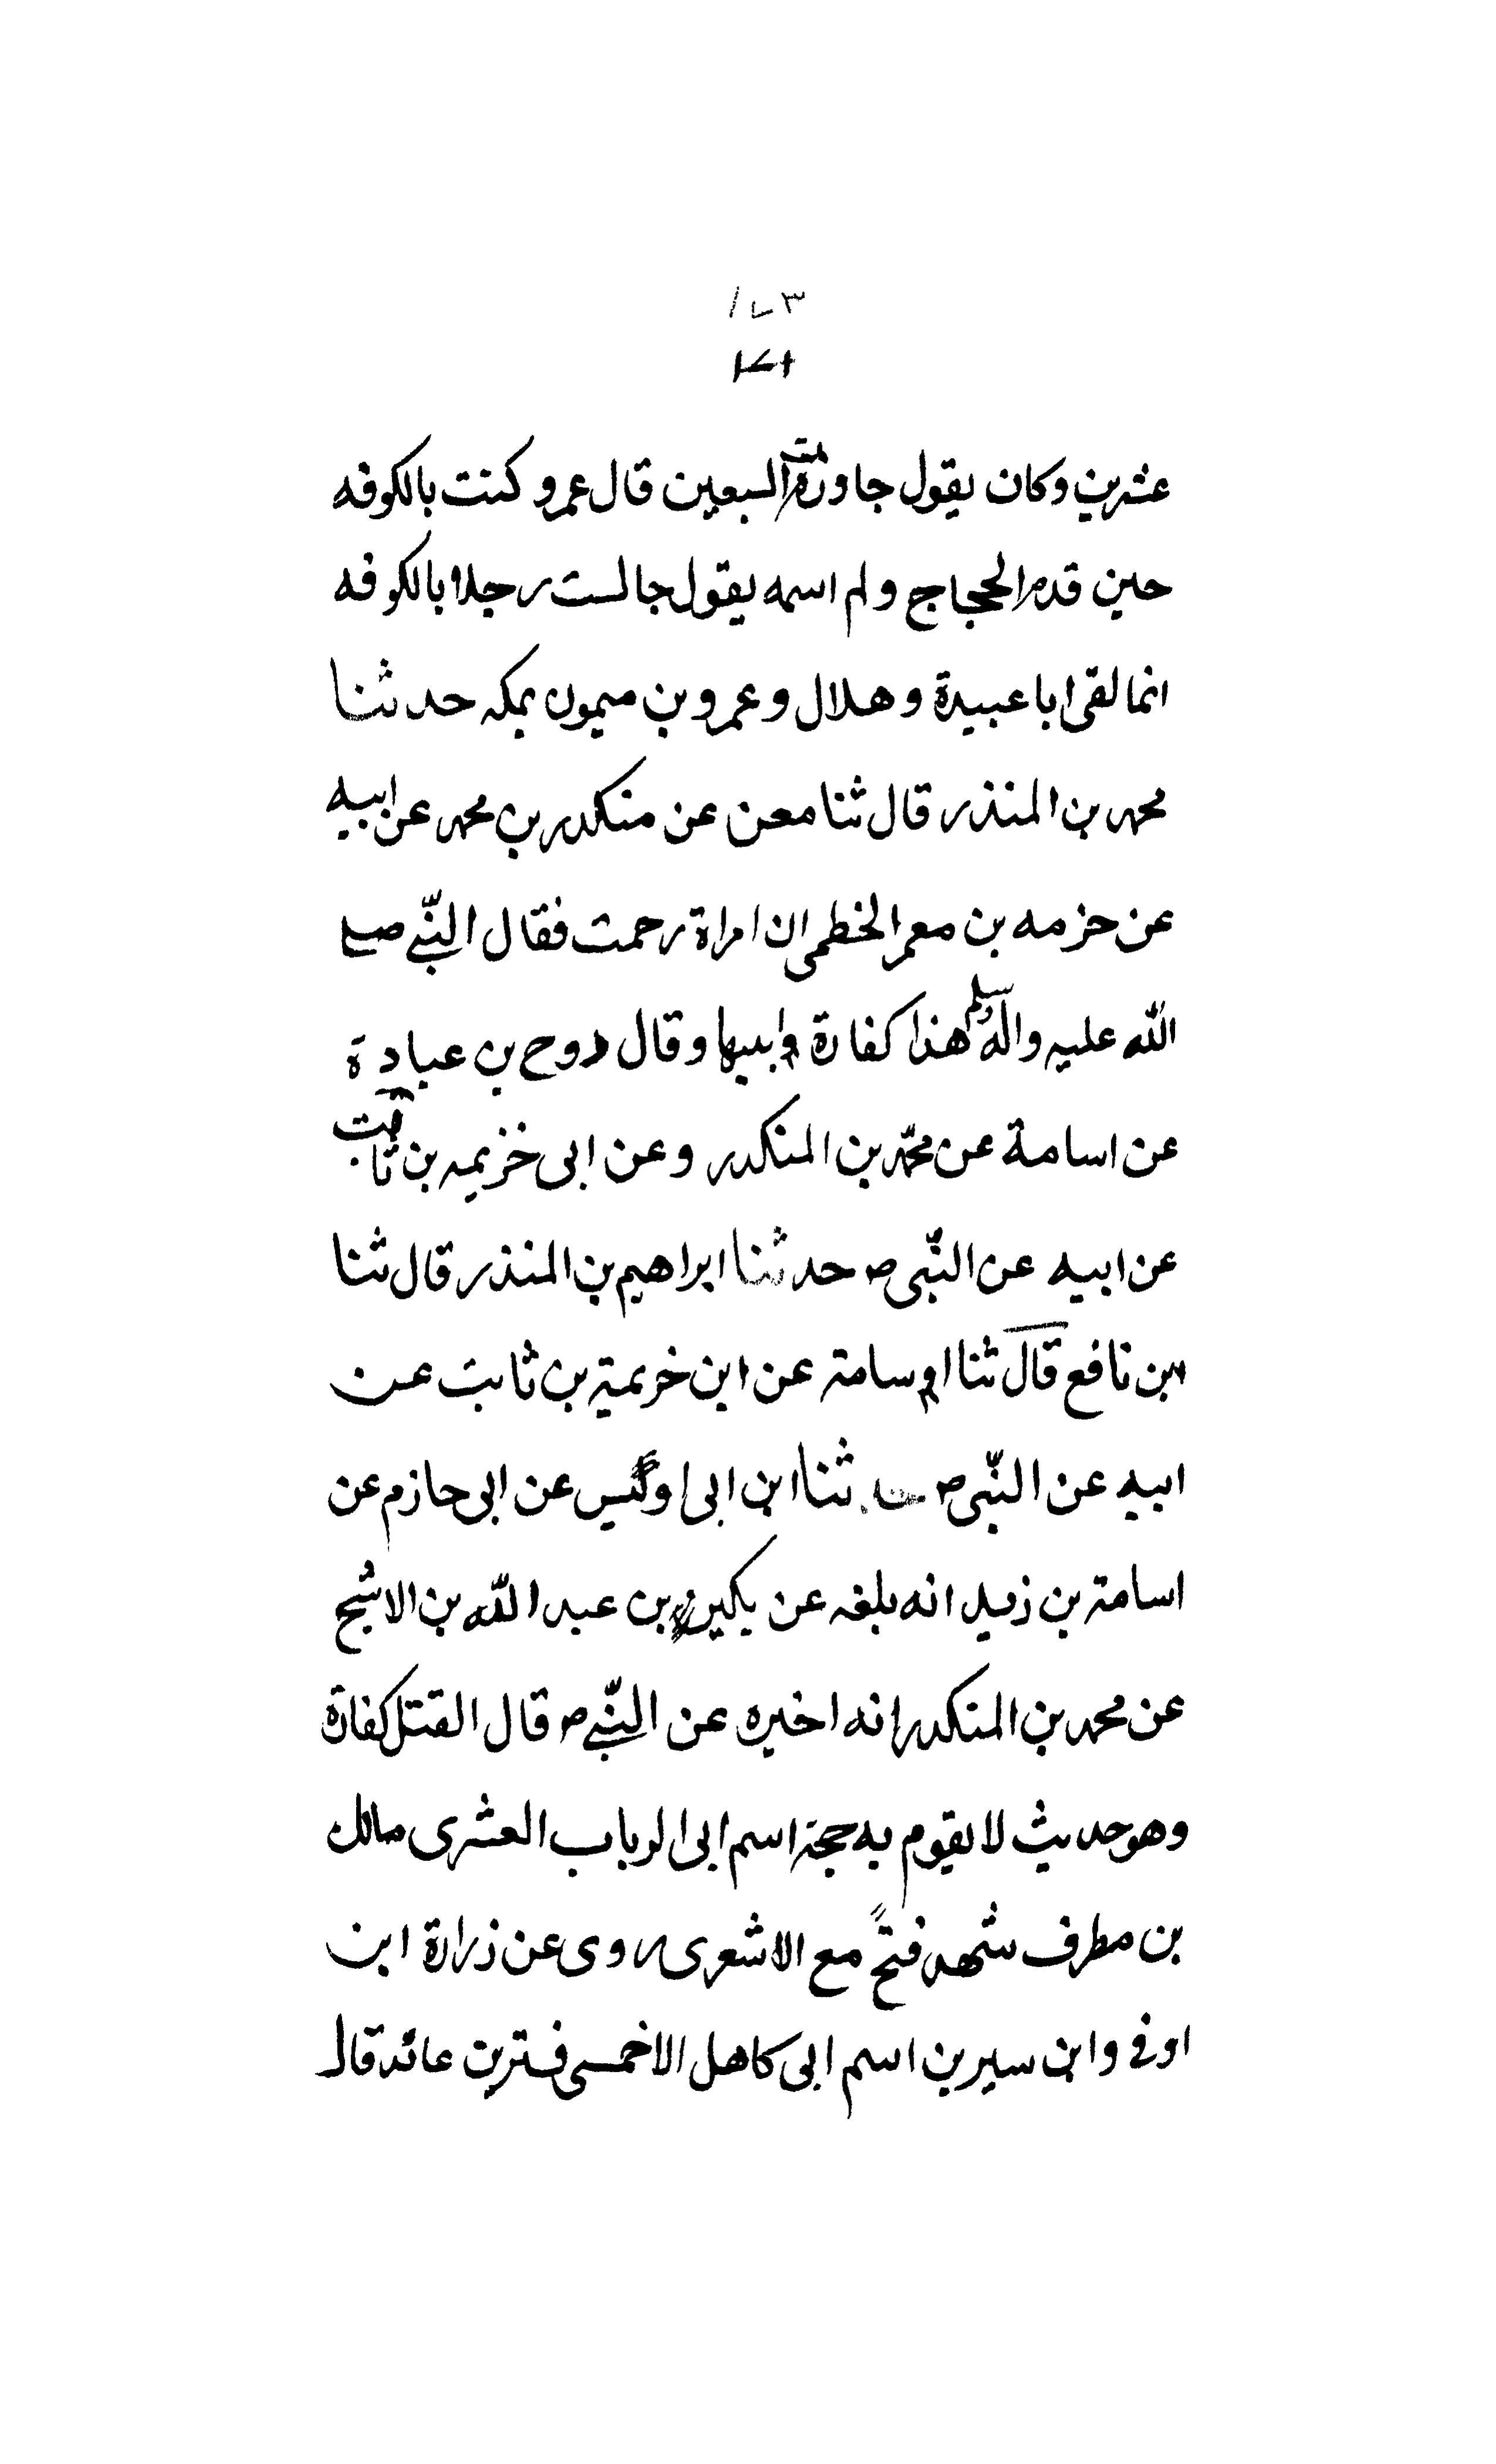 ١٧٣
عشرين وكان يقول جاوزت السبعين قال عمرو كنت بالكوفه
حين قدم الحجاج ولم اسمه يقول جالست رجلا بالكوفه
انما لقى ابا عبيدة وهلال وعمرو بن ميمون بمكه حدثنا
محمد بن المنذر قال ثنا معن عن منكدر بن محمد عن ابيه
عن حزمه بن معمر الخطمى ان امراة رحمت فقال النّبي صلى
الله عليه واله وسلم هذا كفارة وقال روح بن عبادة
عن اسامة عن محمّد بن المنكدر وعن ابى خزيمه بن ثابت
عن ابيه عن النّبى ص حدثنا ابراهيم بن المنذر قال ثنا
بن نافع قال ثنا اسامة عن ابن خزيمة بن ثابت عن
ابيه عن النّبى ص ثنا ابن ابى اويس عن ابى حازم عن
اسامة بن زيد انه بلغه عن بكير بن عبد الله بن الاشج
عن محمد بن المنكدر انه اخبره عن النّبي ص قال القتل كفارة
وهو حديث لا يقوم به حجة اسم ابى الرباب العشرى مالك
بن مطرف شهد فتحً مع الاشعرى روى عن زرارة ابن
اوفى وابن سيرين اسم ابى كاهل الاخمسى عائد قال